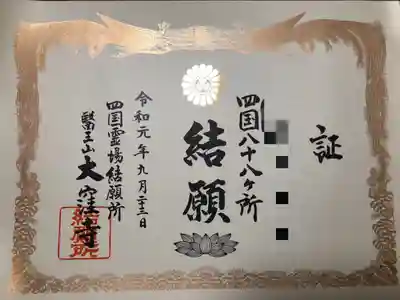 証
四国八十八ヶ所
結願
令和元年九月二十三日
四国霊場結願所
醫王山 大窪寺
結願所